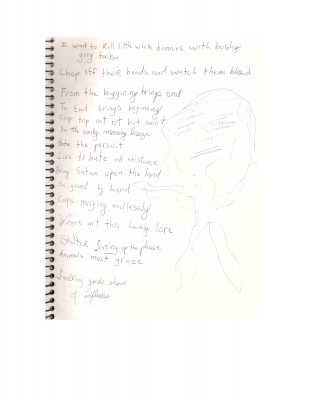 I want to kill little white bunnies with bushy
grey tails
Chop off their heads and watch them bleed
From the biggining brings end
To End brings beginning
Clip top not not but
In the early morning breeze
Hate the persuit
Live to hate all existance
Pray Satan upon the land
So grand by hand
Cops morping endlessly
Where art thou loving lore
Skelter Sizing up the phase
Animals must graze
show
of influence